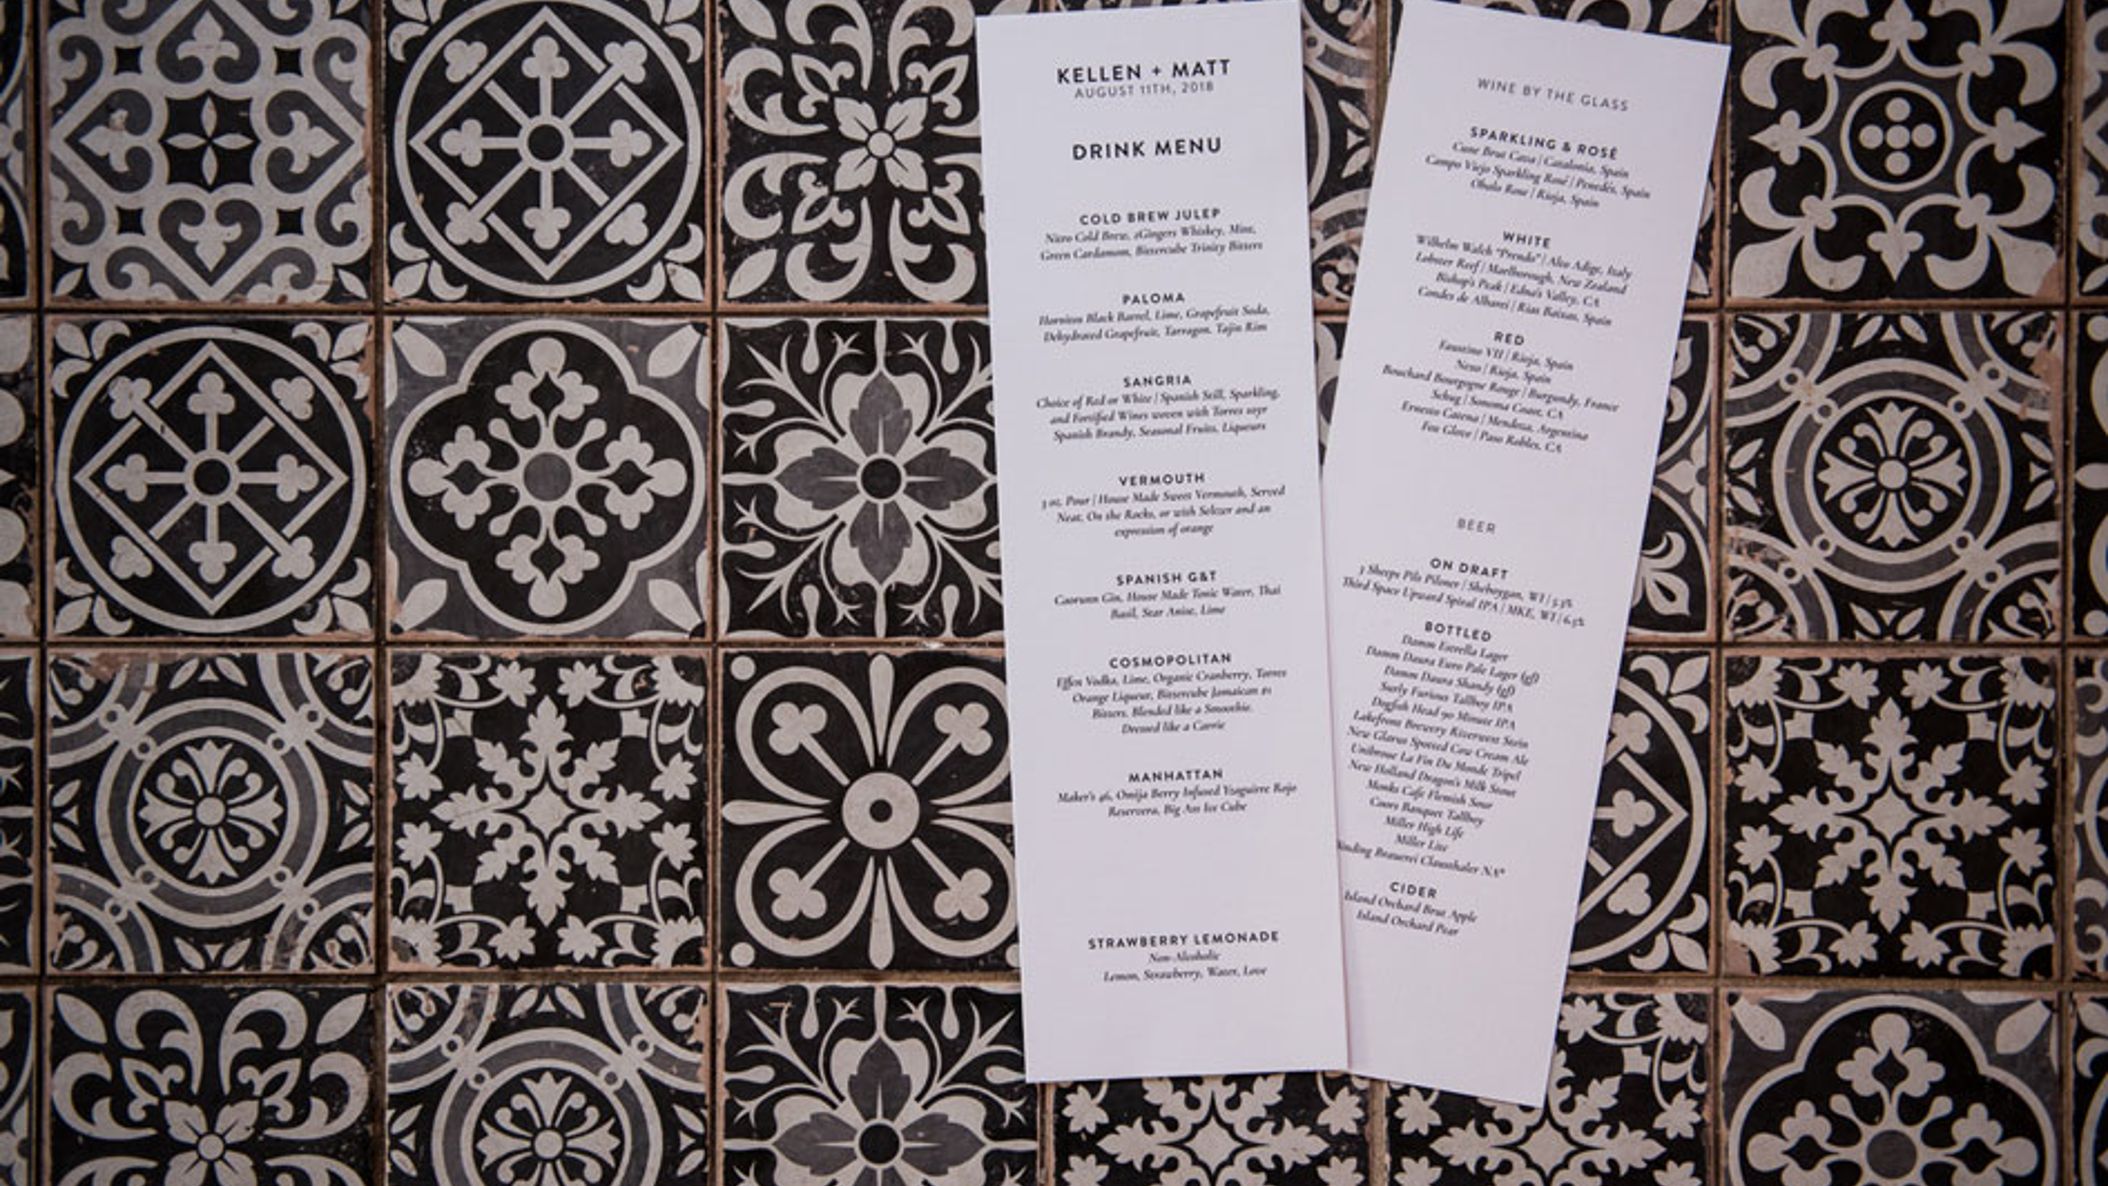 KELLEN + MATT
AUGUST 11TH, 2018
DRINK MENU
COLD BREW JULEP
Nitro Cold Brew, 2Gingers Whiskey, Mint,
Green Cardamom, Bittercube Trinity Bitters
PALOMA
Hornitos Black Barrel, Lime, Grapefruit Soda,
Dehydrated Grapefruit, Tarragon, Tajin Rim
SANGRIA
Choice of Red or White | Spanish Still, Sparkling,
and Fortified Wines woven with Torres 10yr
Spanish Brandy, Seasonal Fruits, Liqueurs
VERMOUTH
3 oz. Pour | House Made Sweet Vermouth, Served
Neat, On the Rocks, or with Seltzer and an
expression of orange
SPANISH G&T
Caorunn Gin, House Made Tonic Water, Thai
Basil, Star Anise, Lime
COSMOPOLITAN
Effen Vodka, Lime, Organic Cranberry, Torres
Orange Liqueur, Bittercube Jamaican #1
Bitters, Blended like a Smoothie.
Dressed like a Carrie
MANHATTAN
Maker's 46, Omija Berry Infused Yzaguirre Rojo
Reservera, Big Ass Ice Cube
STRAWBERRY LEMONADE
Non-Alcoholic
Lemon, Strawberry, Water, Love
WINE BY THE GLASS
SPARKLING & ROSÉ
Cune Brut Cava | Catalonia, Spain
Campo Viejo Sparkling Rosé | Penedés, Spain
Obalo Rose | Rioja, Spain
WHITE
Wilhelm Walch "Prendo" | Alto Adige, Italy
Lobster Reef | Marlborough, New Zealand
Bishop's Peak | Edna's Valley, CA
Condes de Albarei | Rias Baixas, Spain
RED
Faustino VII | Rioja, Spain
Nexo | Rioja, Spain
Bouchard Bourgogne Rouge | Burgundy, France
Schug | Sonoma Coast, CA
Ernesto Catena | Mendoza, Argentina
Fox Glove | Paso Robles, CA
BEER
ON DRAFT
3 Sheeps Pils Pilsner | Sheboygan, WI | 5.3%
Third Space Upward Spiral IPA | MKE, WI | 6.5%
BOTTLED
Damm Estrella Lager
Damm Daura Euro Pale Lager (gf)
Damm Daura Shandy (gf)
Surly Furious Tallboy IPA
Dogfish Head 90 Minute IPA
Lakefront Brewery Riverwest Stein
New Glarus Spotted Cow Cream Ale
Unibroue La Fin Du Monde Tripel
New Holland Dragon's Milk Stout
Monks Cafe Flemish Sour
Coors Banquet Tallboy
Miller High Life
Miller Lite
Brauerei Clausthaler NA*
CIDER
Island Orchard Brut Apple
Island Orchard Pear